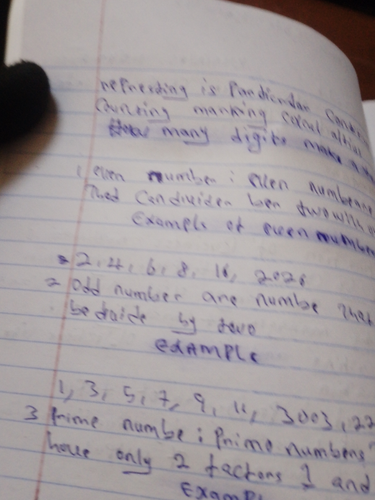 referding is Pandicular
Counting manking calculation
many digits make
1 even number : even numbers
that candividen ben two with
Example of even number
= 2, 4, 6, 8, 10, 2020
2 odd number are numbe that
be divide by two
EXAMPLE
1, 3, 5, 7, 9, 11, 3003, 22
3 Prime numbe : Prime numbers
have only 2 factors 1 and
EXAMPL